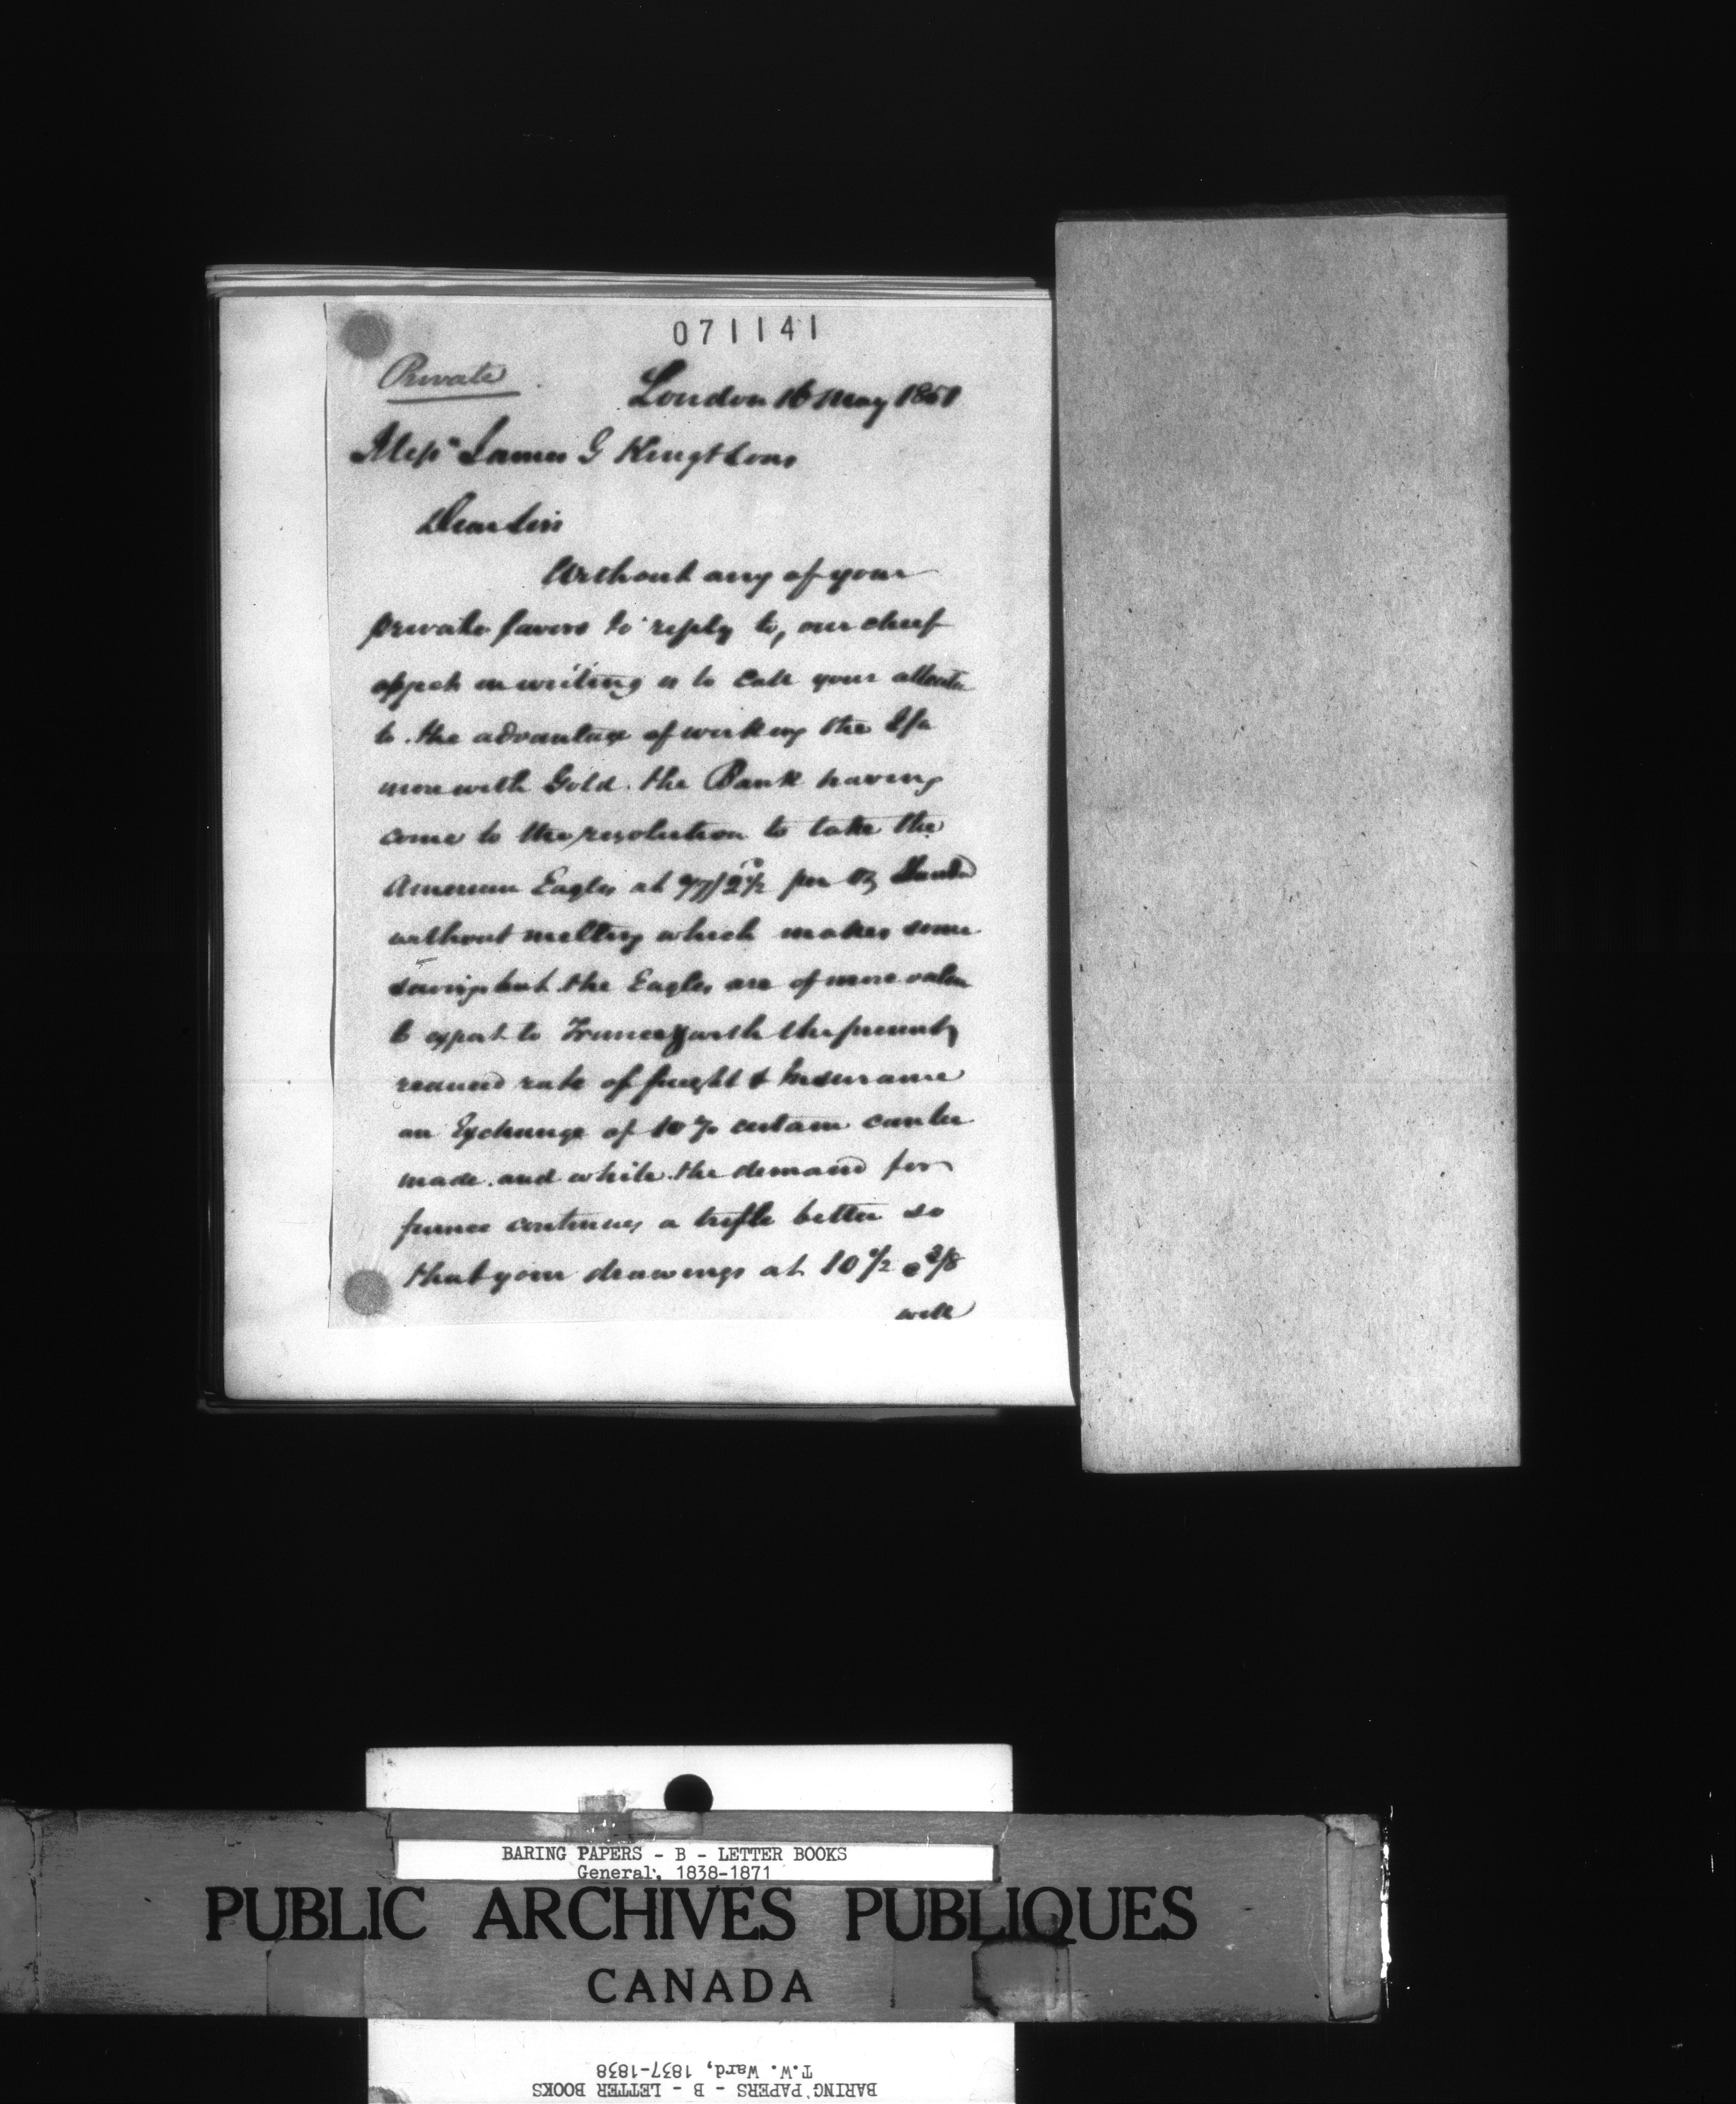 071141
Private
London 16 May 1851
Mess^rs James G King & Sons
Dear Sirs
Without any of your
private favors to reply to, our chief
object in writing is to call your attentn
to the advantage of working the
more with Gold. the Bank having
come to the resolution to take the
American Eagles at 77/2½ per oz
without melting which makes some
saving but the Eagles are of more value
to export to France with the present
reduced rate of freight & Insurance
an Exchange of 10 % certain can be
made. and while the demand for
france continues a trifle better so
that your drawings at 10 ½ @ 3/8
will
BARING PAPERS - B - LETTER BOOKS
General, 1838-1871
PUBLIC ARCHIVES PUBLIQUES
CANADA
T.W. Ward, 1837-1838
BARING PAPERS - B - LETTER BOOKS